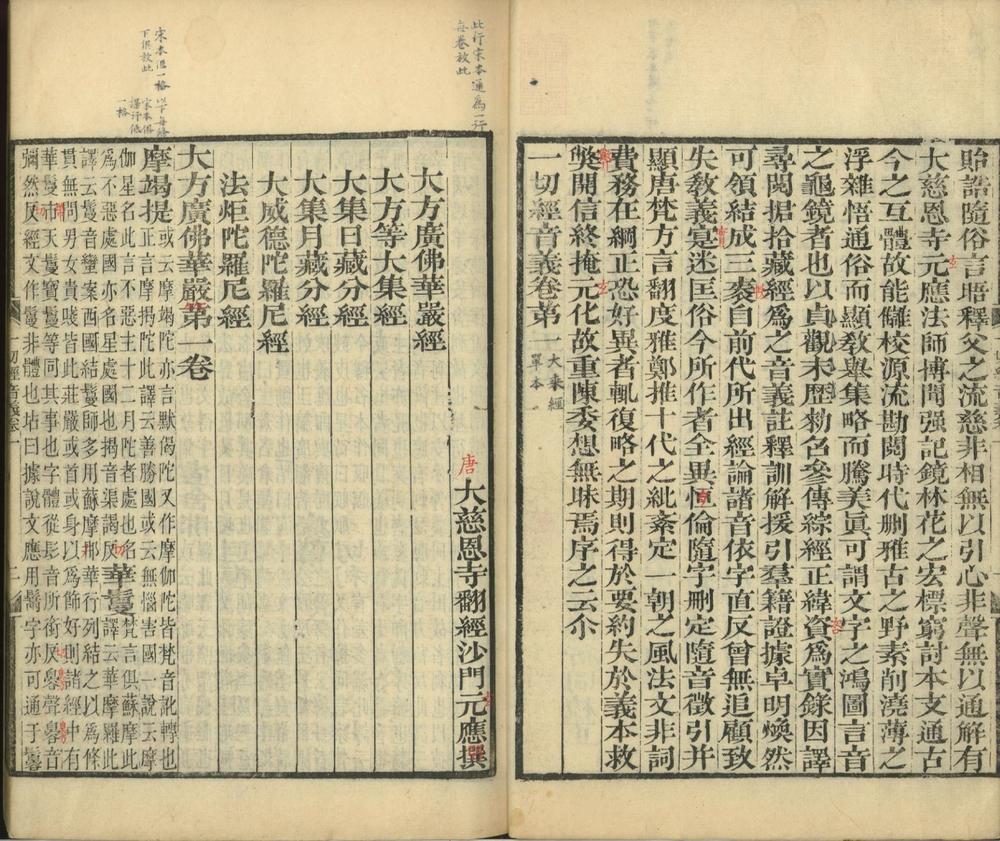 貽誥隨俗言晤釋父之流慈非相無以引心非聲無以通解有
大慈恩寺元應法師博聞强記鏡林花之宏標窮討本支通古
今之互體故能讎校源流勘閱時代删雅古之野素削澆薄之
浮雜悟通俗而顯敎舉集略而騰美眞可謂文字之鴻圖言音
之龜鏡者也以貞觀末歷勑召參傳綜經正緯資爲實錄因譯
尋閱捃拾藏經爲之音義註釋訓解援引羣籍證據卓明煥然
可領結成三袠自前代所出經論諸音依字直反曾無追顧致
失敎義寔迷匡俗今所作者全異恒倫隨字删定隨音徵引并
顯唐梵方言翻度雅鄭推十代之紕紊定一朝之風法文非詞
費務在綱正恐好異者輒復略之期則得於要約失於義本救
弊開信終掩元化故重陳委想無昧焉序之云尒
一切經音義卷第一 大乘經單本
此行宋本通爲一行
每卷放此
唐大慈恩寺翻經沙門元應撰
大方廣佛華嚴經
大方等大集經
大集日藏分經
大集月藏分經
大威德陀羅尼經
法炬陀羅尼經
宋本低一格
下俱放此
以下每條
宋本俱
提行低
一格
大方廣佛華嚴第一卷
摩竭提 或云摩竭陀亦言默偈陀又作摩伽陀皆梵音訛轉也
正言摩揭陀此譯云善勝國或云無惱害國一說云摩
伽星名此言不惡主十二月陀者處也名
爲不惡處國亦名星處國也揭音渠謁反 華鬘 梵言俱蘇摩此
譯云華摩羅此
譯云鬘音蠻案西國結鬘師多用蘇摩那華行列結之以爲條
貫無問男女貴賤皆此莊嚴或首或身以爲飾好則諸經中有
華鬘市天鬘寶鬘等同其事也字體從髟音所銜反 聲 音
彌然反經文作 非體也 曰據說文應用 字亦可通于鬘
一切經音義卷一
二